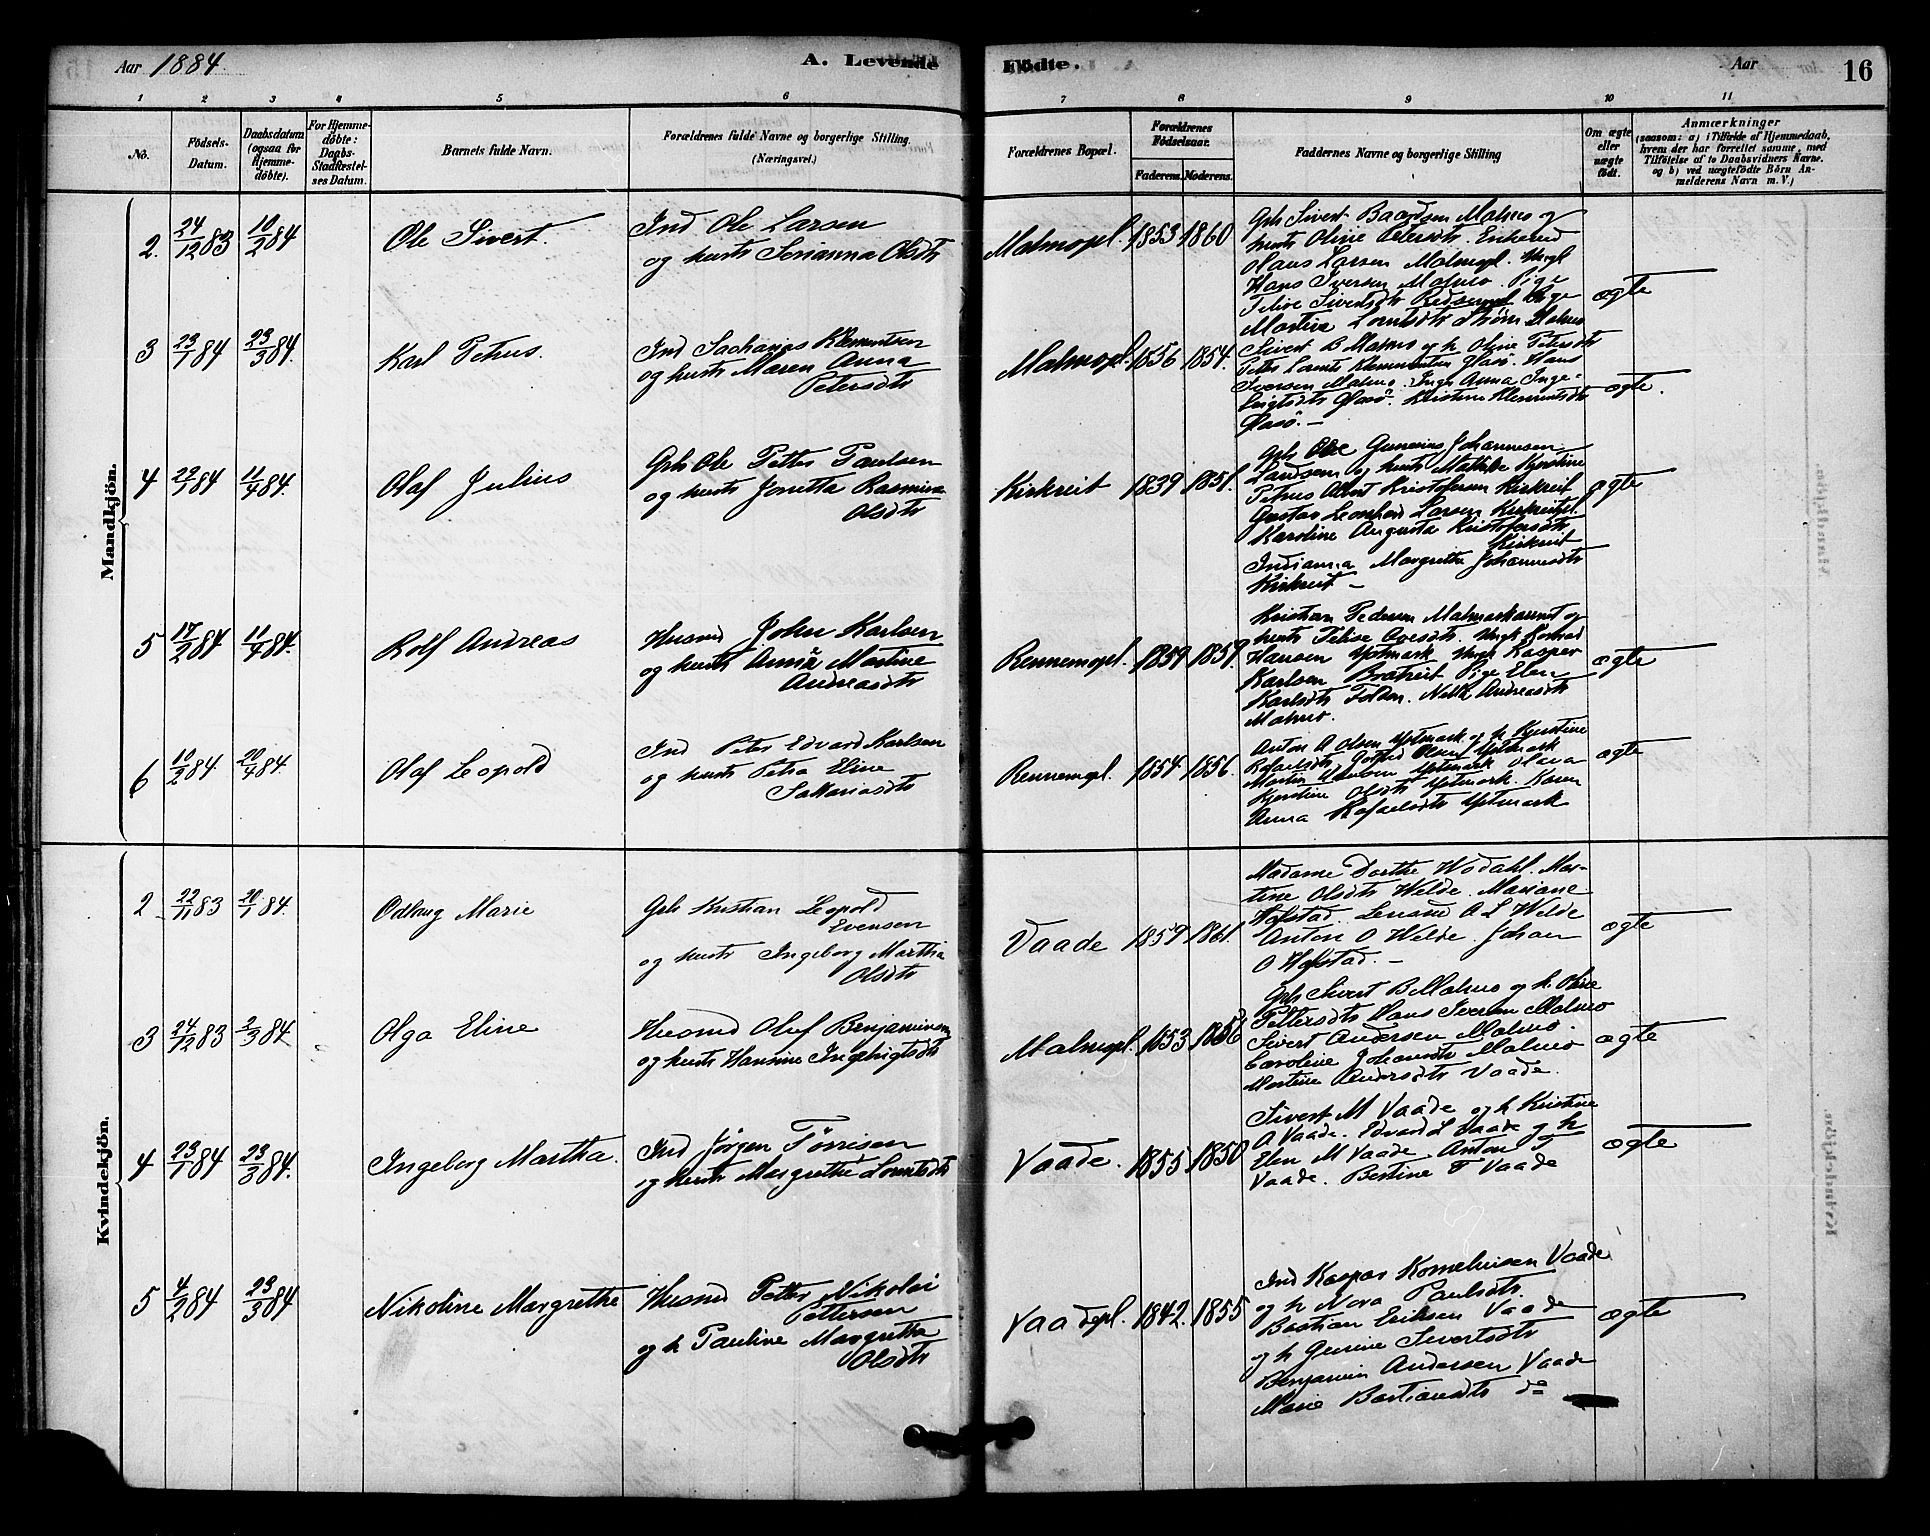 Aar 1884. A. Levende Födte. Aar 16
1 2 3 4 5 6 7 8 9 10 11
No. Födsels-Datum. Daabsdatum (ogsaa for Hjemmedöbte). For Hjemmedöbte: Daabs-Stadfæstelses Datum. Barnets fulde Navn. Forældrenes fulde Navne og borgerlige Stilling. (Næringsvei.) Forældrenes Bopæl. Forældrenes Födselsaar. Faderens. Moderens. Faddernes Navne og borgerlige Stilling Om ægte eller uægte födt. Anmærkninger (saasom: a) i Tilfælde af Hjemmedaab, hvem der har forrettet samme, med Tilföielse af to Daabsvidners Navne. og b) ved uægtefödte Börn Anmelderens Navn m. V.)
Mandkjön.
2. 24/12 83 10/2 84 Ole Sivert. Ind Ole Larsen
og hust Serianna Olsdtr
Malmopl. 1853 1860
Gbr Sivert Baardsen Malmo og
hust Oline Petersdtr. Enkemd
Hans Larsen Malmopl. Ungk
Hans Iversen Malmo. Pige
Felise Sivertsdtr Pige
Martine Lorntsdtr Strøm Malmo
ægte
3 23/1 84 23/3 84. Karl Petrus. Ind Sacharias Klemetsen
og hustr Maren Anna
Petersdtr
Malmopl. 1856 1854.
Sivert B Malmo og h. Oline Petersdtr
Peter Lornts Klemmetsen Glasö. Hans
Iversen Malmo. Inger Anna Inge-
brigtsdtr Glasö. Kristine Klemmetsdtr
Glasö. —
ægte.
4 22/1 84 11/4 84. Olaf Julius Gbr Ole Petter Paulsen
og hustr Jonetta Rasmine
Olsdtr
Kirkreit 1839 1851.
Gbr Ole Gunerius Johannesen
Landsem og hustr Mathilde Kjerstine
Petrus Albert Kristofersen Kirkreit
Gustav Leonhard Larsen Kirkreitpl.
Karoline Augusta Kristofersdtr
Kirkreit
Indianna Margrethe Johannesdtr
Kirkreit —
ægte
5 17/2 84 11/4 84. Rolf Andreas Husmd John Karlsen
og hustr Anna Martine
Andreasdtr
Rennemopl. 1859 1859.
Kristian Pedersen Malmo og
hustr Felise Ovesdtr. Ungk Konrad
Hansen Ystmark Ungk Kasper
Karlsen Bratreit Pige Elen
Karlsdtr Folden. Andreasdtr
Malmo.
ægte
6 10/2 84 20/4 84. Olaf Leopold Ind Peter Edvard Karlsen
og hustr Petra Eline
Sakariasdtr
Rennemopl. 1854 1856.
Anton A Olsen Ystmark og h. Kjerstine
Rafaelsdtr Olsen Ystmark
Martin Hansen Ystmark Olava
Kjerstine Olsdtr Ystmark. Karen
Anna Rafaelsdtr Ystmark
ægte
Kvindekjön.
2 22/11 83 20/1 84. Odlaug Marie Gbr Kristian Leopold
Evensen
og hustr Ingeborg Martha
Olsdtr
Vaade 1859 1861.
Madame Dorthe Wodahl. Mar-
tine Olsdtr Welde. Mariane
Hofstad. Lensmd A L Welde
Anton O Welde. Johan
O Hofstad. —
ægte
3 24/12 83 2/3 84 Olga Eline Husmd Oluf Benjaminsen
og hustr Hansine Ingebrigtsdtr
Malmopl. 1853 1856
Gbr Sivert B Malmo og h. Oline
Pettersdtr Hans Iversen Malmo
Sivert Andersen Malmo.
Caroline Johansdtr Malmo
Martine Andersdtr Vaade.
ægte
4 23/1 84 23/3 84. Ingeborg Martha. Ind Jörgen Törrisen
og hustr Margrethe Lorntsdtr
Vaade. 1855 1850
Sivert M Vaade og h Kristine
A Vaade. Edvard L Vaade og h
Elen M Vaade Anton J
Vaade. Bertine F Vaade
ægte
5 4/2 84 23/3 84 Nikoline Margrethe Husmd Petter Nikolai
Pettersen
og h Pauline Margretta
Olsdtr
Vaadepl. 1842. 1855
Ind Kaspar Korneliusen Vaade
og h Nora Paulsdtr.
Bastian Eriksen Vaade
og h Gurine Sivertsdtr
Benjamin Andersen Vaade
Marie Bastiansdtr do
ægte